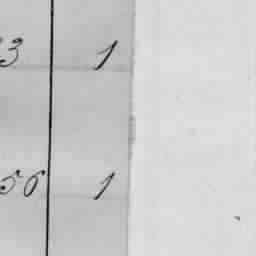 3 1
56 1